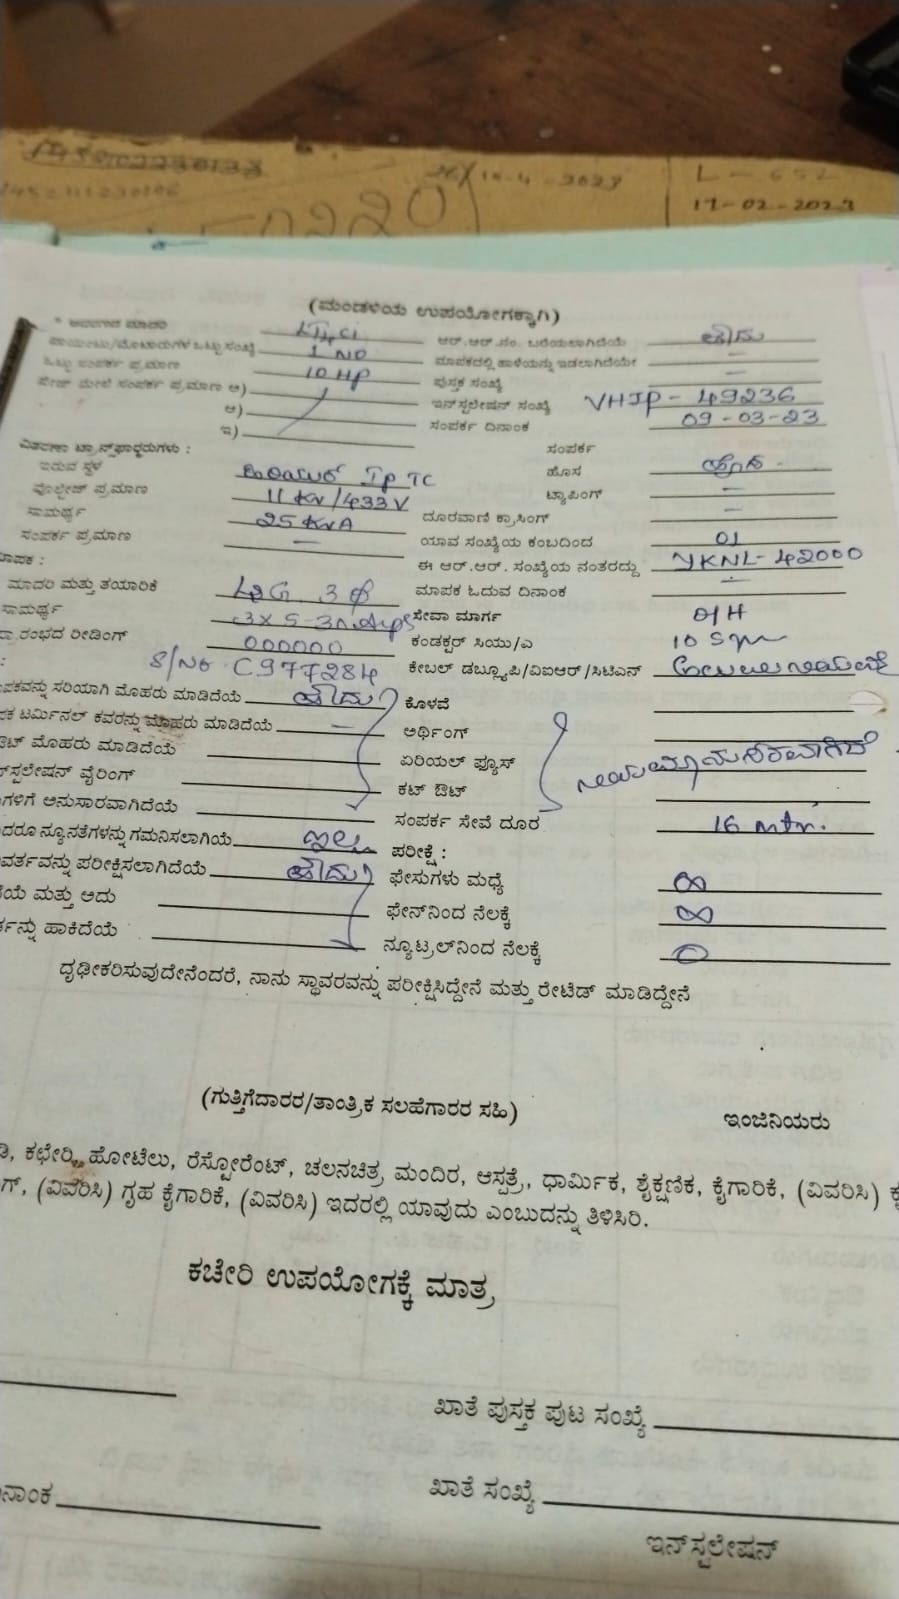 26/10-4-2023 L-652
17-02-2023
(ಮಂಡಳಿಯ ಉಪಯೋಗಕ್ಕಾಗಿ)
ಆರ್.ಆರ್.ನಂ. ಬರೆಯಲಾಗಿದೆಯೆ ಹೌದು
ಪಾಯಿಂಟು/ಮೋಟಾರುಗಳ ಒಟ್ಟು ಸಂಖ್ಯೆ 1 NO ಮಾಪಕದಲ್ಲಿ ಹಾಳೆಯನ್ನು ಇಡಲಾಗಿದೆಯೇ —
ಒಟ್ಟು ಸಂಪರ್ಕ ಪ್ರಮಾಣ 10 HP ಪುಸ್ತಕ ಸಂಖ್ಯೆ —
ಮೇಲೆ ಸಂಪರ್ಕ ಪ್ರಮಾಣ ಅ) ಇನ್‌ಸ್ಟಲೇಷನ್ ಸಂಖ್ಯೆ VHIP - 49236
ಆ) ಸಂಪರ್ಕ ದಿನಾಂಕ 09-03-23
ಇ)
ವಿತರಣಾ ಟ್ರಾನ್ಸ್‌ಫಾರ್ಮರುಗಳು : ಸಂಪರ್ಕ
ಇರುವ ಸ್ಥಳ IP TC ಹೊಸ ಹೊಸ
ವೋಲ್ಟೇಜ್ ಪ್ರಮಾಣ 11 KV/433V ಟ್ಯಾಪಿಂಗ್ —
ಸಾಮರ್ಥ್ಯ 25 KVA ದೂರವಾಣಿ ಕ್ರಾಸಿಂಗ್ —
ಸಂಪರ್ಕ ಪ್ರಮಾಣ — ಯಾವ ಸಂಖ್ಯೆಯ ಕಂಬದಿಂದ 01
ಮಾಪಕ : ಈ ಆರ್.ಆರ್. ಸಂಖ್ಯೆಯ ನಂತರದ್ದು YKNL-42000
ಮಾದರಿ ಮತ್ತು ತಯಾರಿಕೆ L&G 3 ϕ ಮಾಪಕ ಓದುವ ದಿನಾಂಕ —
ಸಾಮರ್ಥ್ಯ 3X5-30Amps ಸೇವಾ ಮಾರ್ಗ O/H
ಪ್ರಾರಂಭದ ರೀಡಿಂಗ್ 000000 ಕಂಡಕ್ಟರ್ ಸಿಯು/ಎ 10 Sqm
S/No C977284 ಕೇಬಲ್ ಡಬ್ಲ್ಯೂಪಿ/ವಿಐಆರ್/ಸಿಟಿಎಸ್
ಮಾಪಕವನ್ನು ಸರಿಯಾಗಿ ಮೊಹರು ಮಾಡಿದೆಯೆ ಹೌದು ಕೊಳವೆ
ಟರ್ಮಿನಲ್ ಕವರನ್ನು ಮೊಹರು ಮಾಡಿದೆಯೆ — ಅರ್ಥಿಂಗ್
ಔಟ್ ಮೊಹರು ಮಾಡಿದೆಯೆ ಏರಿಯಲ್ ಫ್ಯೂಸ್ ನಿಯಮಾನುಸಾರವಾಗಿದೆ
ಇನ್‌ಸ್ಟಲೇಷನ್ ವೈರಿಂಗ್ ಕಟ್ ಔಟ್
ಗಳಿಗೆ ಅನುಸಾರವಾಗಿದೆಯೆ ಸಂಪರ್ಕ ಸೇವೆ ದೂರ 16 mtr.
ನ್ಯೂನತೆಗಳನ್ನು ಗಮನಿಸಲಾಗಿಯೆ ಇಲ್ಲ ಪರೀಕ್ಷೆ :
ವರ್ತವನ್ನು ಪರೀಕ್ಷಿಸಲಾಗಿದೆಯೆ ಹೌದು ಫೇಸುಗಳು ಮಧ್ಯೆ ∞
ಮತ್ತು ಅದು ಫೇಸ್‌ನಿಂದ ನೆಲಕ್ಕೆ ∞
ಹಾಕಿದೆಯೆ ನ್ಯೂಟ್ರಲ್‌ನಿಂದ ನೆಲಕ್ಕೆ 0
ದೃಢೀಕರಿಸುವುದೇನೆಂದರೆ, ನಾನು ಸ್ಥಾವರವನ್ನು ಪರೀಕ್ಷಿಸಿದ್ದೇನೆ ಮತ್ತು ರೇಟೆಡ್ ಮಾಡಿದ್ದೇನೆ
(ಗುತ್ತಿಗೆದಾರರ/ತಾಂತ್ರಿಕ ಸಲಹೆಗಾರರ ಸಹಿ) ಇಂಜಿನಿಯರು
ಕಛೇರಿ, ಹೋಟೆಲು, ರೆಸ್ಟೋರೆಂಟ್, ಚಲನಚಿತ್ರ ಮಂದಿರ, ಆಸ್ಪತ್ರೆ, ಧಾರ್ಮಿಕ, ಶೈಕ್ಷಣಿಕ, ಕೈಗಾರಿಕೆ, (ವಿವರಿಸಿ)
(ವಿವರಿಸಿ) ಗೃಹ ಕೈಗಾರಿಕೆ, (ವಿವರಿಸಿ) ಇದರಲ್ಲಿ ಯಾವುದು ಎಂಬುದನ್ನು ತಿಳಿಸಿರಿ.
ಕಚೇರಿ ಉಪಯೋಗಕ್ಕೆ ಮಾತ್ರ
ಖಾತೆ ಪುಸ್ತಕ ಪುಟ ಸಂಖ್ಯೆ
ದಿನಾಂಕ ಖಾತೆ ಸಂಖ್ಯೆ
ಇನ್‌ಸ್ಟಲೇಷನ್